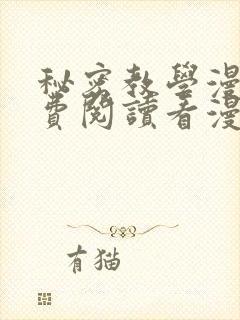 秘密教學漫
費閱讀看漫
有猫